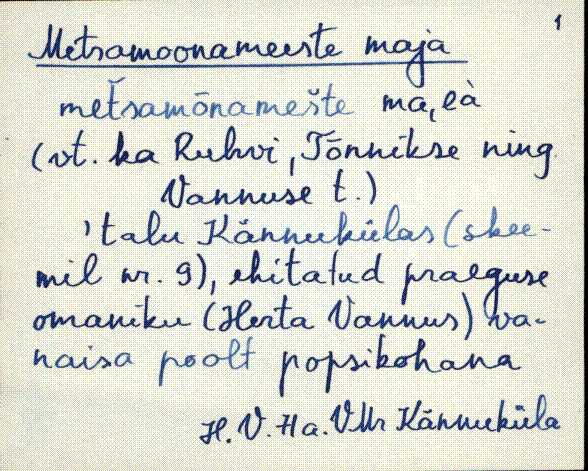 1
Metsamoonameeste maja
met̆samōnamešte ma,eà
(vt. ka Ruhvi, Tõnnikse ning
Vannuse t.)
'talu Kännukülas (skee-
mil nr. 9), ehitatud praeguse
omaniku (Herta Vannus) va-
naisa poolt popsikohana
H. V. Ha. VMr Kännuküla